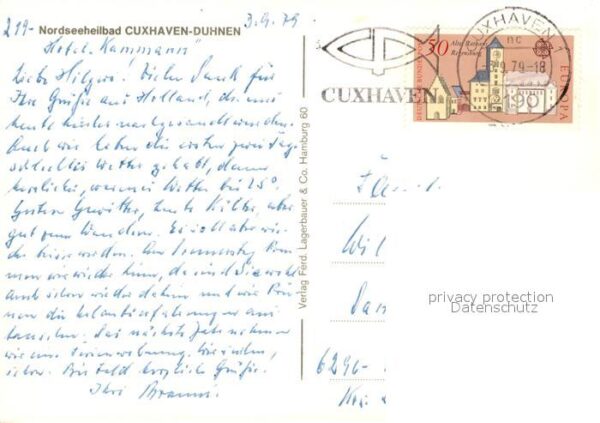 219- Nordseeheilbad CUXHAVEN-DUHNEN 3.9.79
Hotel "Kammann"
Liebe Hilgers! Vielen Dank für
Ihre Grüße aus Holland, die uns
heute hierher nachgesandt wurden.
Auch wir haben die ersten zwei Tage
schlechtes Wetter gehabt, dann
herrliches, warmes Wetter bis 25°.
Gestern Gewitter, heute Kühle, aber
gut zum Wandern. Es soll aber wie-
der besser werden. Am Donnerstag
wir wieder heim, da sind Sie wohl
auch schon wieder daheim und wir kön-
nen die Urlaubserfahrungen aus
tauschen. Das nächste Jahr nehmen
wir uns
schon. Bis bald herzliche Grüße.
Ihre
Verlag Ferd. Lagerbauer & Co. Hamburg 60
CUXHAVEN
CUXHAVEN 1
nc
.9.79-18
2190
50 Altes Rathaus
Regensburg
DEUTSCHE BUNDESPOST
EUROPA
Fam
Wil
privacy protection
Datenschutz
6290